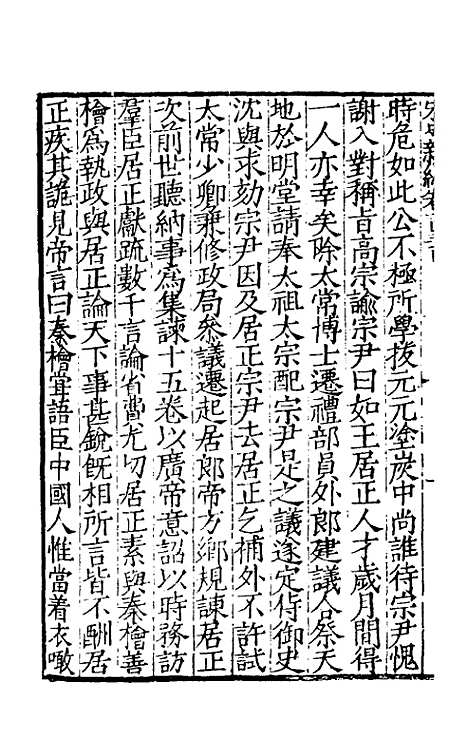 時危如此公不極所學抜元元塗炭中尚誰待宗尹愧
謝入對稱旨高宗諭宗尹曰如王居正人才歲月間得
一人亦幸矣除太常博士遷禮部員外郎建議合祭天
地於明堂請奉太祖太宗配宗尹是之議遂定侍御史
沈與求劾宗尹因及居正宗尹去居正乞補外不許試
太常少卿兼修政局叅議遷起居郎帝方鄉規諫居正
次前世聽納事爲集諫十五卷以廣帝意詔以時務訪
羣臣居正獻疏數千言論省費尤切居正素與秦檜善
檜爲執政與居正論天下事甚銳旣相所言皆不酬居
正疾其詭見帝言曰秦檜嘗語臣中國人惟當着衣噉